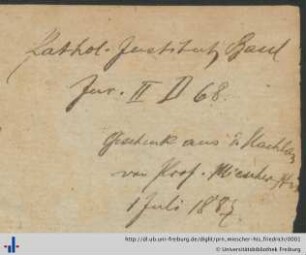 Kathol. Institut, Basel
Jur. II D 68.
Geschenk aus d. Nachlass
von Prof. Miescher
1 Juli 188
http://dl.ub.uni-freiburg.de/diglit/prn_miescher-his_friedrich/0001
© Universitätsbibliothek Freiburg